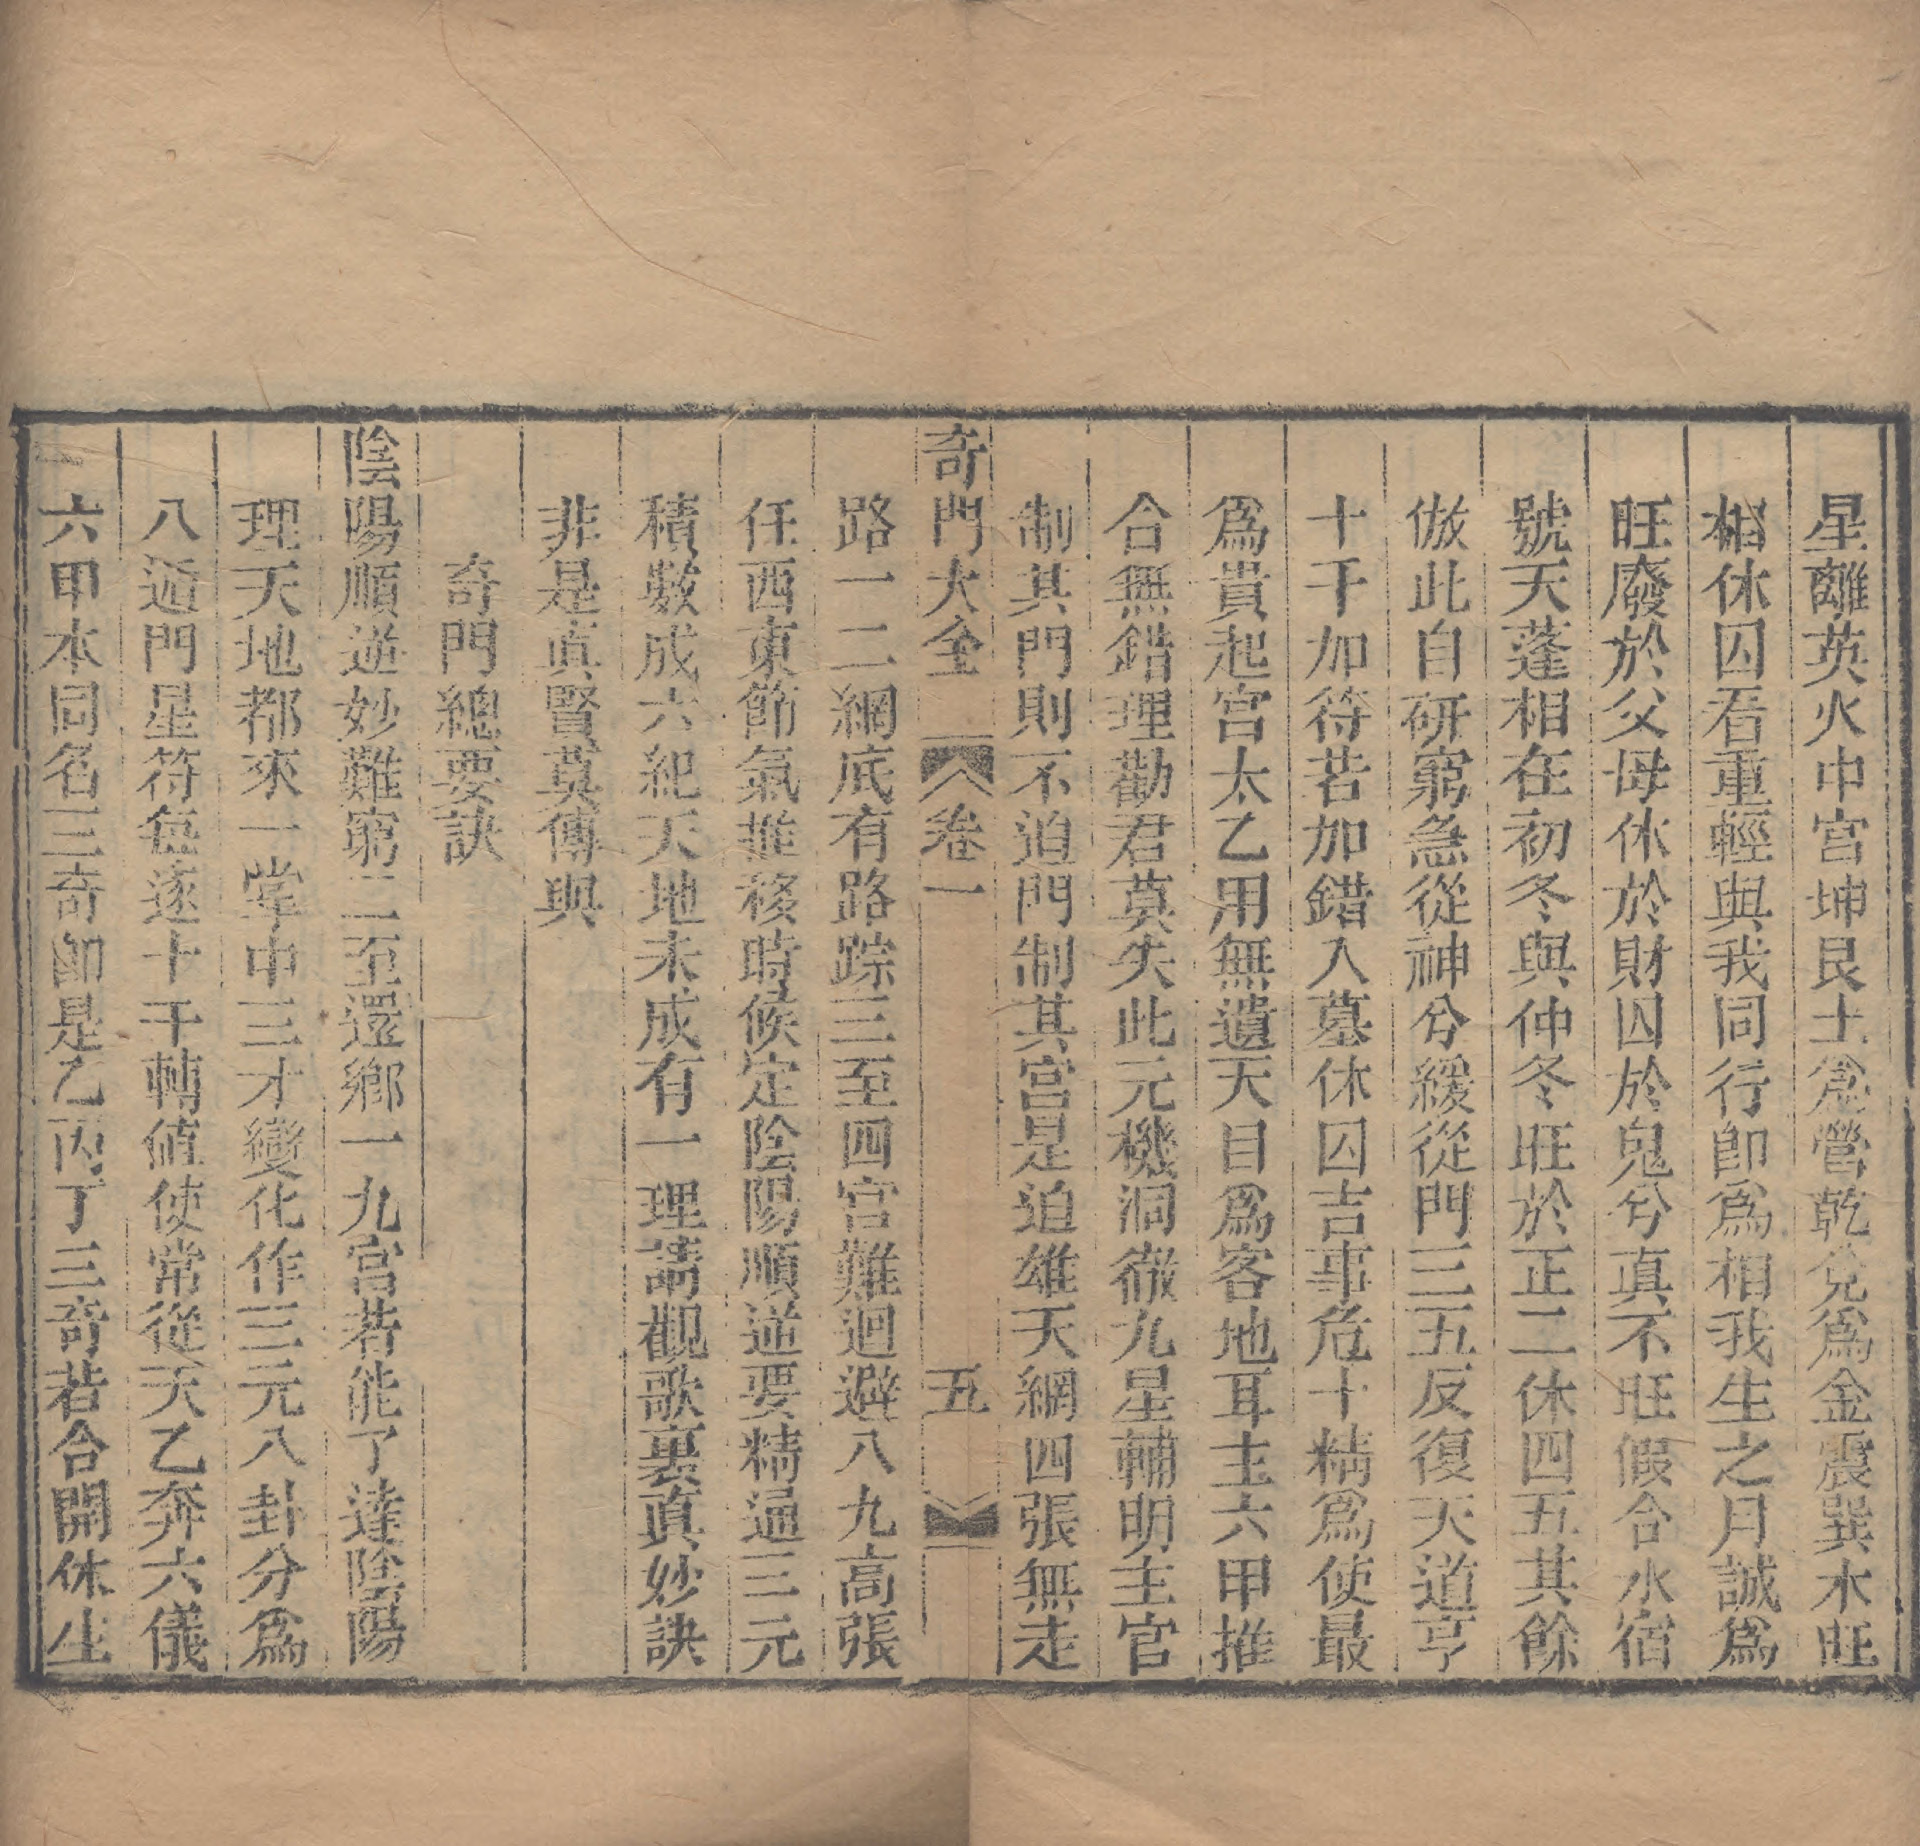 星離英火中宮坤艮土爲營乾兌爲金震巽木旺
相休囚看重輕與我同行卽爲相我生之月誠爲
旺廢於父母休於財囚於鬼兮真不旺假合水宿
號天蓬相在初冬與仲冬旺於正二休四五其餘
倣此自研窮急從神兮緩從門三五反復天道亨
十干加待若加錯入墓休囚吉事危十精爲使最
爲貴起宮太乙用無遺天目爲客地耳主六甲推
合無錯理勸君莫失此元機洞徹九星輔明主官
制其門則不迫門制其宮是迫雄天網四張無走
奇門大全 卷一 五
路一二網底有路踪三至四宮難迴避八九高張
任西東節氣推移時候定陰陽順逆要精通三元
積數成六紀天地未成有一理請觀歌裏真妙訣
非是真賢莫傳與
奇門總要訣
陰陽順逆妙難窮二至還鄉一九宮若能了達陰陽
理天地都來一掌中三才變化作三元八卦分爲
八遁門星符每逐十干轉値使常從天乙奔六儀
六甲本同名三奇卽是乙丙丁三奇若合開休生